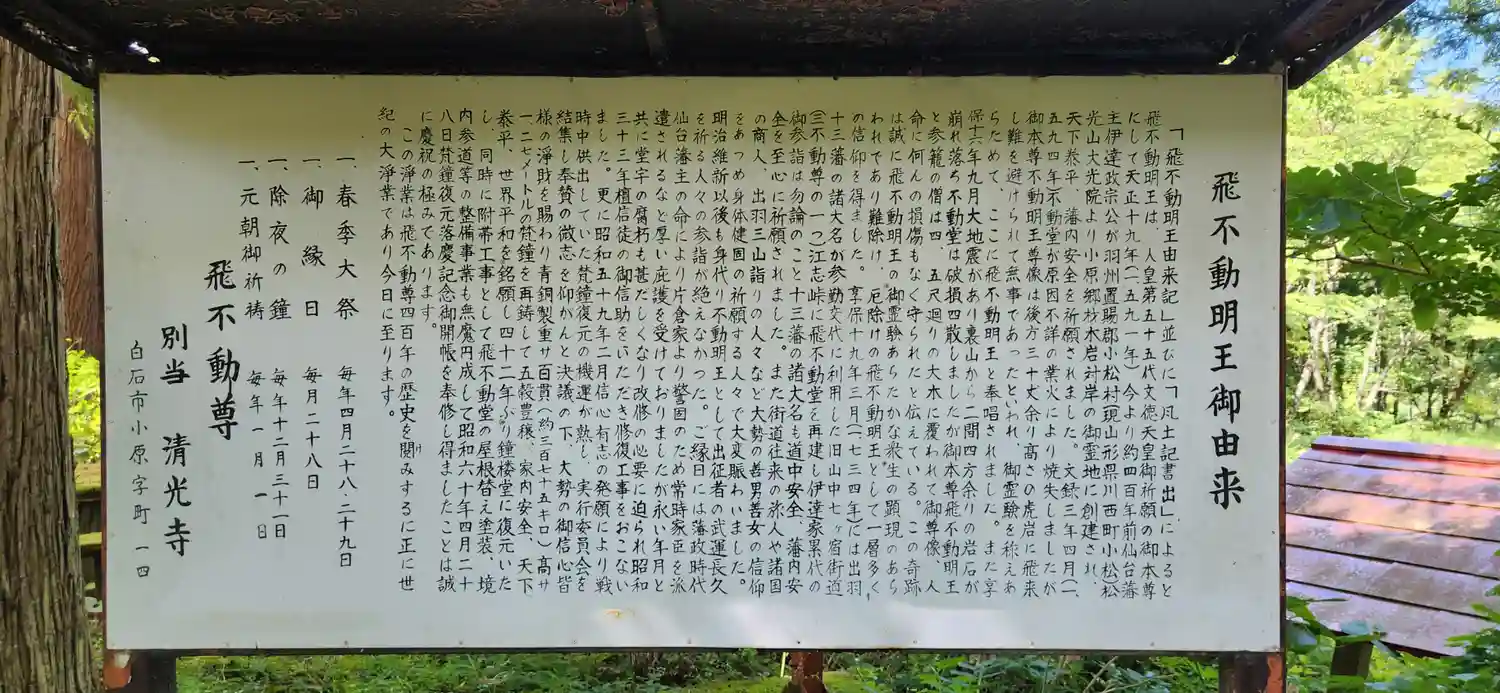 飛不動明王御由来
「飛不動明王由来記」並びに「風土記書出」によると
飛不動明王は、人皇第五十五代文徳天皇御祈願の御本尊
にして天正十九年(一五九一年)今より約四百年前仙台藩
主伊達政宗公が羽州置賜郡小松村(現山形県川西町小松)松
光山大光院より小原郷材木岩対岸の御霊地に創建され、
天下泰平、藩内安全を祈願されました。文録三年四月(一、
五九四年)不動堂が原因不詳の業火により焼失しましたが
御本尊不動明王尊像は後方三十丈余り高さの虎岩に飛来
し難を避けられて無事であったといわれ、御霊験を称えあ
らためて、ここに飛不動明王と奉唱されました。また享
保十六年九月大地震があり裏山から二間四方余りの岩石が
崩れ落ち不動堂は破損四散しましたが御本尊飛不動明王
と参籠の僧は四、五尺廻りの大木に覆われて御尊像、人
命に何んの損傷もなく守られたと伝えている。この奇跡
は誠に飛不動明王の御霊験あらたかな衆生の顕現のあら
われであり難除け、厄除けの飛不動明王として一層多く
の信仰を得ました。享保十九年三月(一七三四年)には出羽
十三藩の諸大名が参勤交代に利用した旧山中七ヶ宿街道
(三不動尊の一つ)江志峠に飛不動堂を再建し伊達家累代の
御参詣は勿論のこと十三藩の諸大名も道中安全、藩内安
全を至心に祈願されました。また街道往来の旅人や諸国
の商人、出羽三山詣りの人々など大勢の善男善女の信仰
をあつめ身体健固の祈願する人々で大変賑わいました。
明治維新以後も身代り不動明王として出征者の武運長久
を祈る人々の参詣が絶えなかった。ご縁日には藩政時代
仙台藩主の命により片倉家より警固のため常時家臣を派
遣されるなど厚い庇護を受けておりましたが永い年月と
共に堂宇の腐朽も甚だしくなり改修の必要に迫られ昭和
三十三年檀信徒の御信助をいただき修復工事をおこない
ました。更に昭和五十九年二月信心有志の発願により戦
時中供出していた梵鐘復元の機運が熟し、実行委員会を
結集し奉賛の微志を仰がんと決議の下、大勢の御信心皆
様の浄財を賜わり青銅製重サ百貫(約三百七十五キロ)高サ
一・二七メートルの梵鐘を再鋳して五穀豊穣、家内安全、天下
泰平、世界平和を銘願し四十二年ぶり鐘楼堂に復元いた
し、同時に附帯工事として飛不動堂の屋根替え塗装、境
内参道等の整備事業も無魔円成して昭和六十年四月二十
八日梵鐘復元落慶記念御開帳を奉修し得ましたことは誠
に慶祝の極みであります。
この浄業は飛不動尊四百年の歴史を閲みするに正に世
紀の大浄業であり今日に至ります。
一、春季大祭 毎年四月二十八・二十九日
一、御縁日 毎月二十八日
一、除夜の鐘 毎年十二月三十一日
一、元朝御祈祷 毎年一月一日
飛不動尊
別当 清光寺
白石市小原字町一四